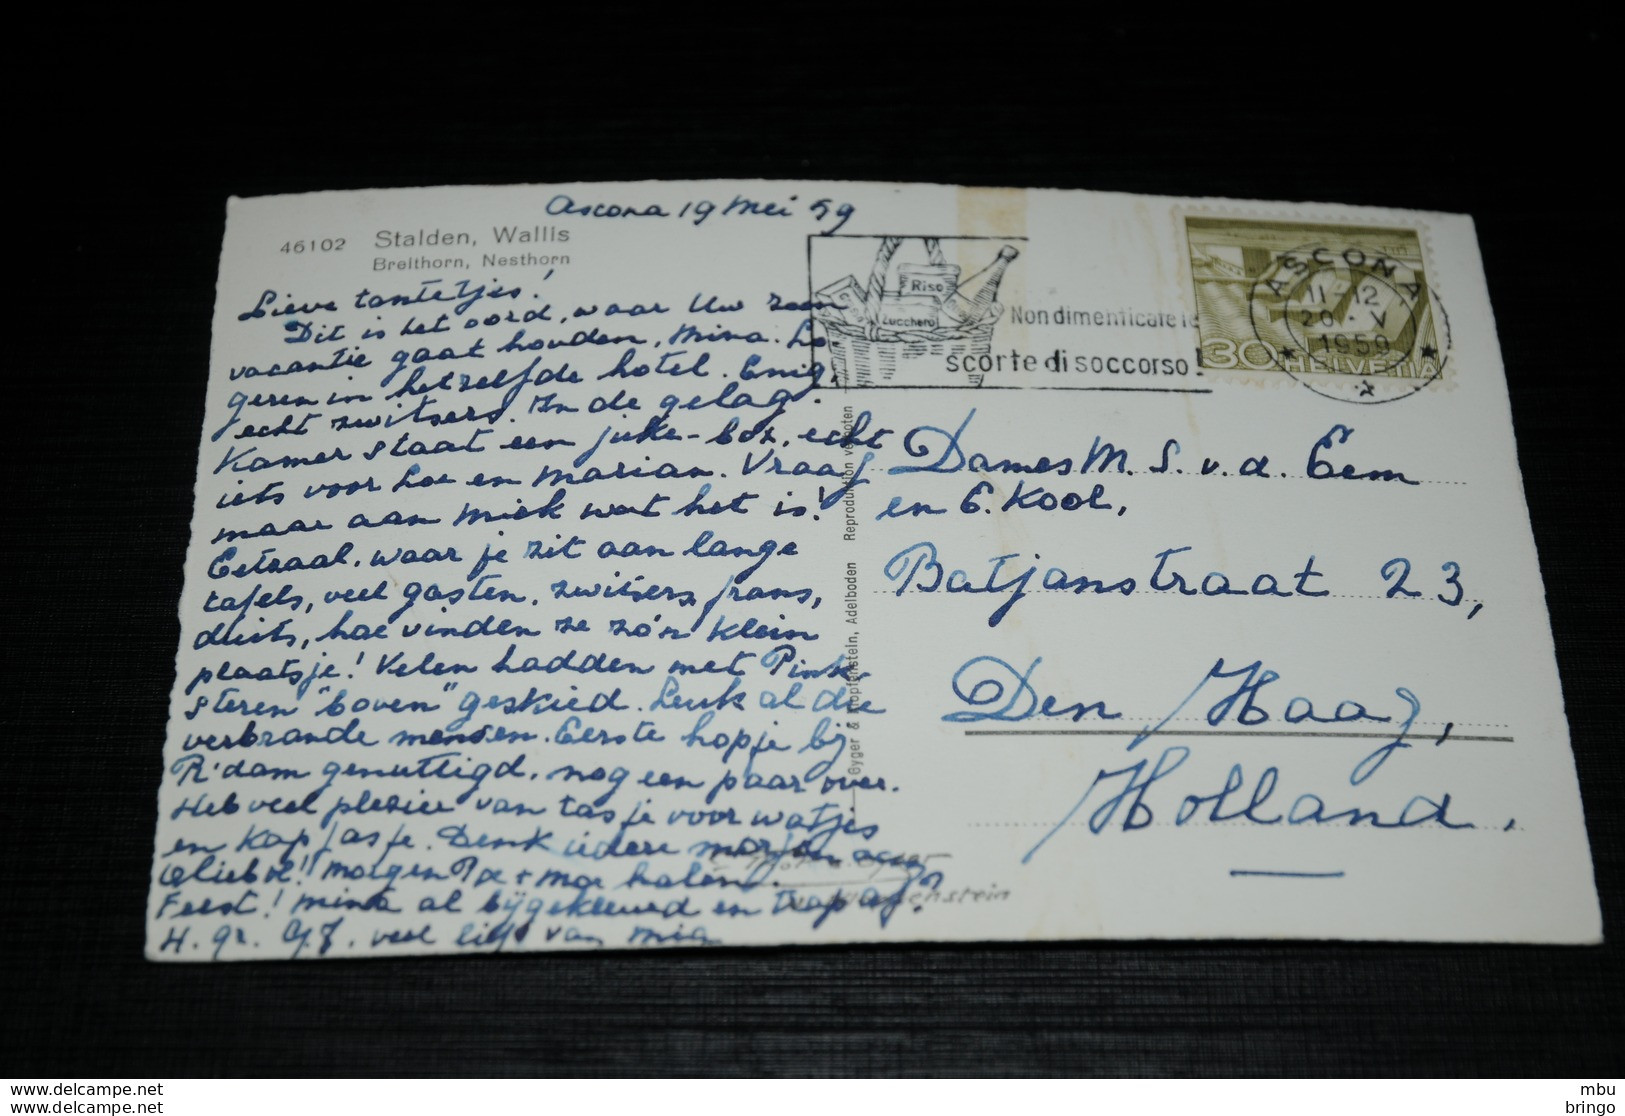 Ascona 19 Mei 59
46102 Stalden, Wallis
Breithorn, Nesthorn
Lieve tantetjes!
Dit is het oord, waar Uw zoon
vacantie gaat houden, Mina. Lo
geren in hetzelfde hotel. Enig
echt zwitsers. In de gelag.
Kamer staat een juke-box, echt
iets voor Loe en Marian. Vraag
maar aan Miek wat het is!
Eetzaal, waar je zit aan lange
tafels, veel gasten, zwitsers, frans,
duits, hoe vinden ze zo'n klein
plaatsje! Velen hadden met Pink
steren "boven" geskied. Leuk al die
verbrande mensen. Eerste hopje bij
R'dam genuttigd, nog een paar over.
Heb veel plezier van tasje voor watjes
en kapjasje. Denk iedere morgen
Olieb..! morgen Pa + Moe halen!
Feest! Mina al bijgekleurd en
H. gr. veel liefs van Mia
Riso
Zucchero
Non dimenticate le
scorte di soccorso!
ASCONA
11-12
20.V
1959
30 HELVETIA
Gyger & Klopfenstein, Adelboden Reproduktion verboten
Dames M. S. v. d. Eem
en G. Kool,
Batjanstraat 23,
Den Haag,
Holland.
all rights reserved
www.delcampe.net
mbu
bringo